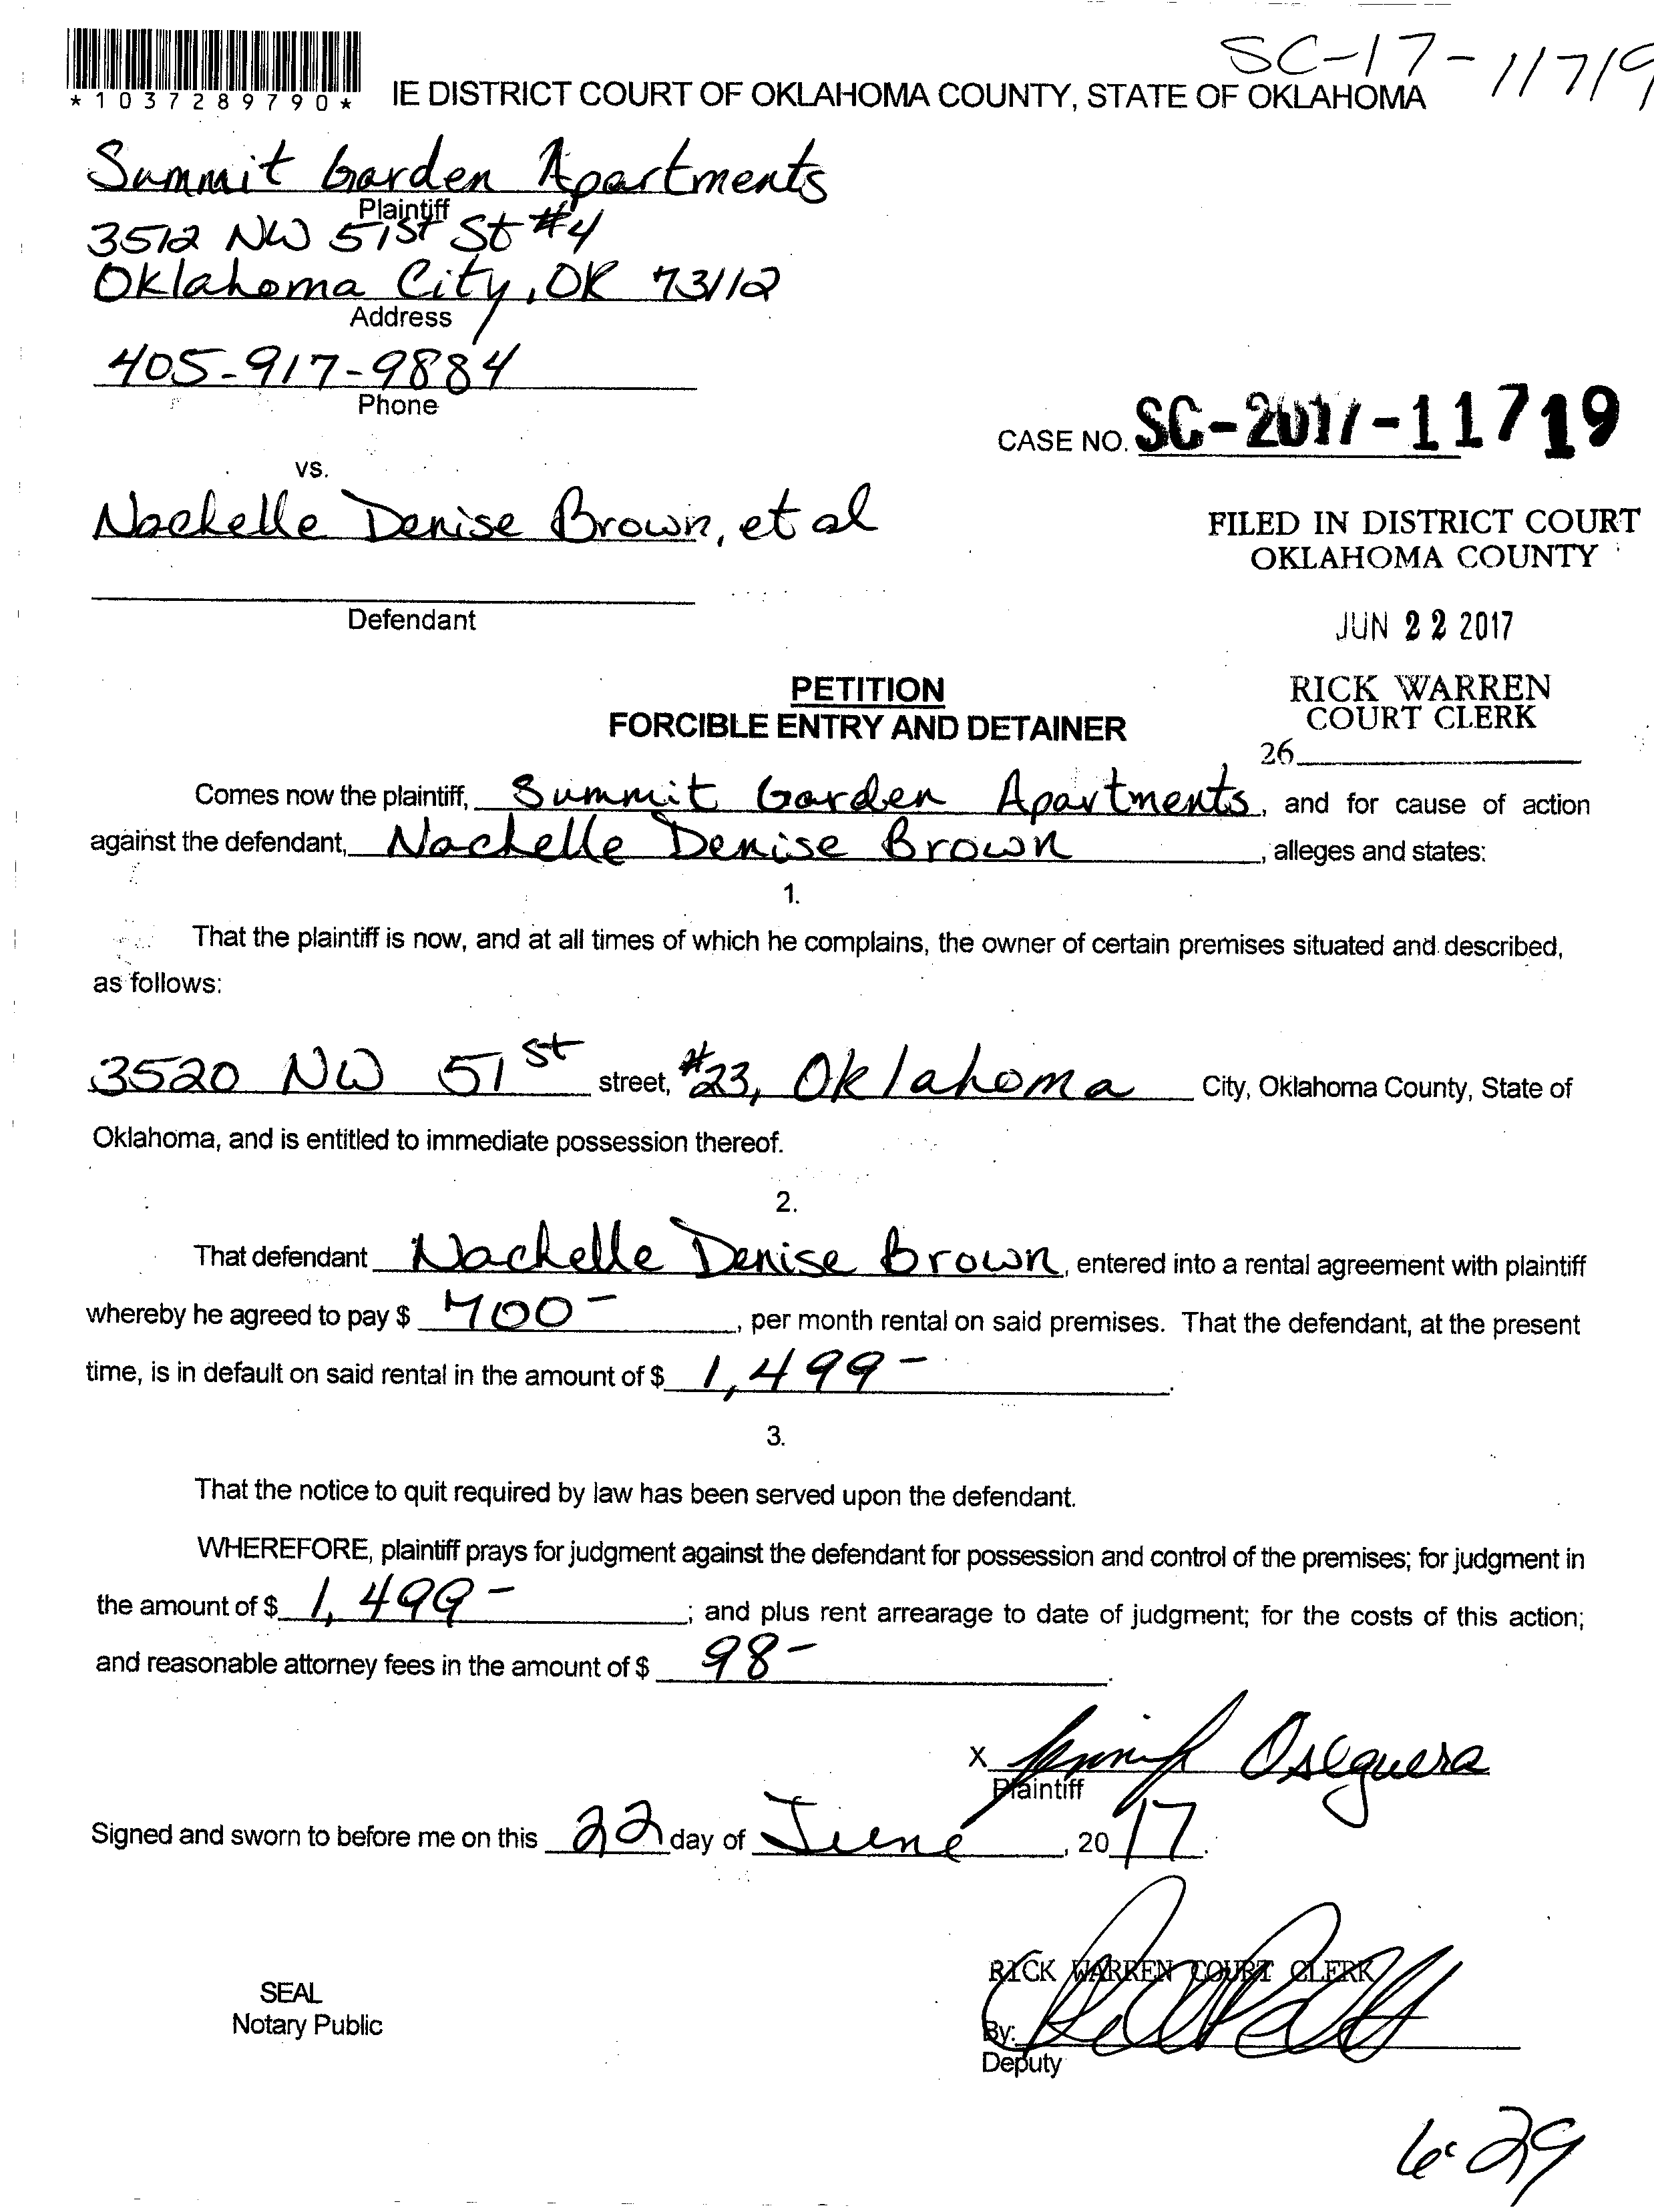 SC-17-11719
*1037289790*
IE DISTRICT COURT OF OKLAHOMA COUNTY, STATE OF OKLAHOMA
Summit Garden Apartments
Plaintiff
3512 NW 51st St #4
Oklahoma City, OK 73112
Address
405-917-9884
Phone
CASE NO. SC-2017-11719
vs.
Nachelle Denise Brown, et al
FILED IN DISTRICT COURT
OKLAHOMA COUNTY
Defendant
JUN 22 2017
PETITION
RICK WARREN
FORCIBLE ENTRY AND DETAINER
COURT CLERK
26
Comes now the plaintiff, Summit Garden Apartments, and for cause of action
against the defendant, Nachelle Denise Brown, alleges and states:
1.
That the plaintiff is now, and at all times of which he complains, the owner of certain premises situated and described,
as follows:
3520 NW 51st street, #23, Oklahoma City, Oklahoma County, State of
Oklahoma, and is entitled to immediate possession thereof.
2.
That defendant Nachelle Denise Brown, entered into a rental agreement with plaintiff
whereby he agreed to pay $ 700-, per month rental on said premises. That the defendant, at the present
time, is in default on said rental in the amount of $ 1,499-.
3.
That the notice to quit required by law has been served upon the defendant.
WHEREFORE, plaintiff prays for judgment against the defendant for possession and control of the premises; for judgment in
the amount of $ 1,499-; and plus rent arrearage to date of judgment; for the costs of this action;
and reasonable attorney fees in the amount of $ 98-.
X Oseguera
Plaintiff
Signed and sworn to before me on this 22 day of June, 2017.
RICK WARREN COURT CLERK
SEAL
Notary Public
By:
Deputy
6-29